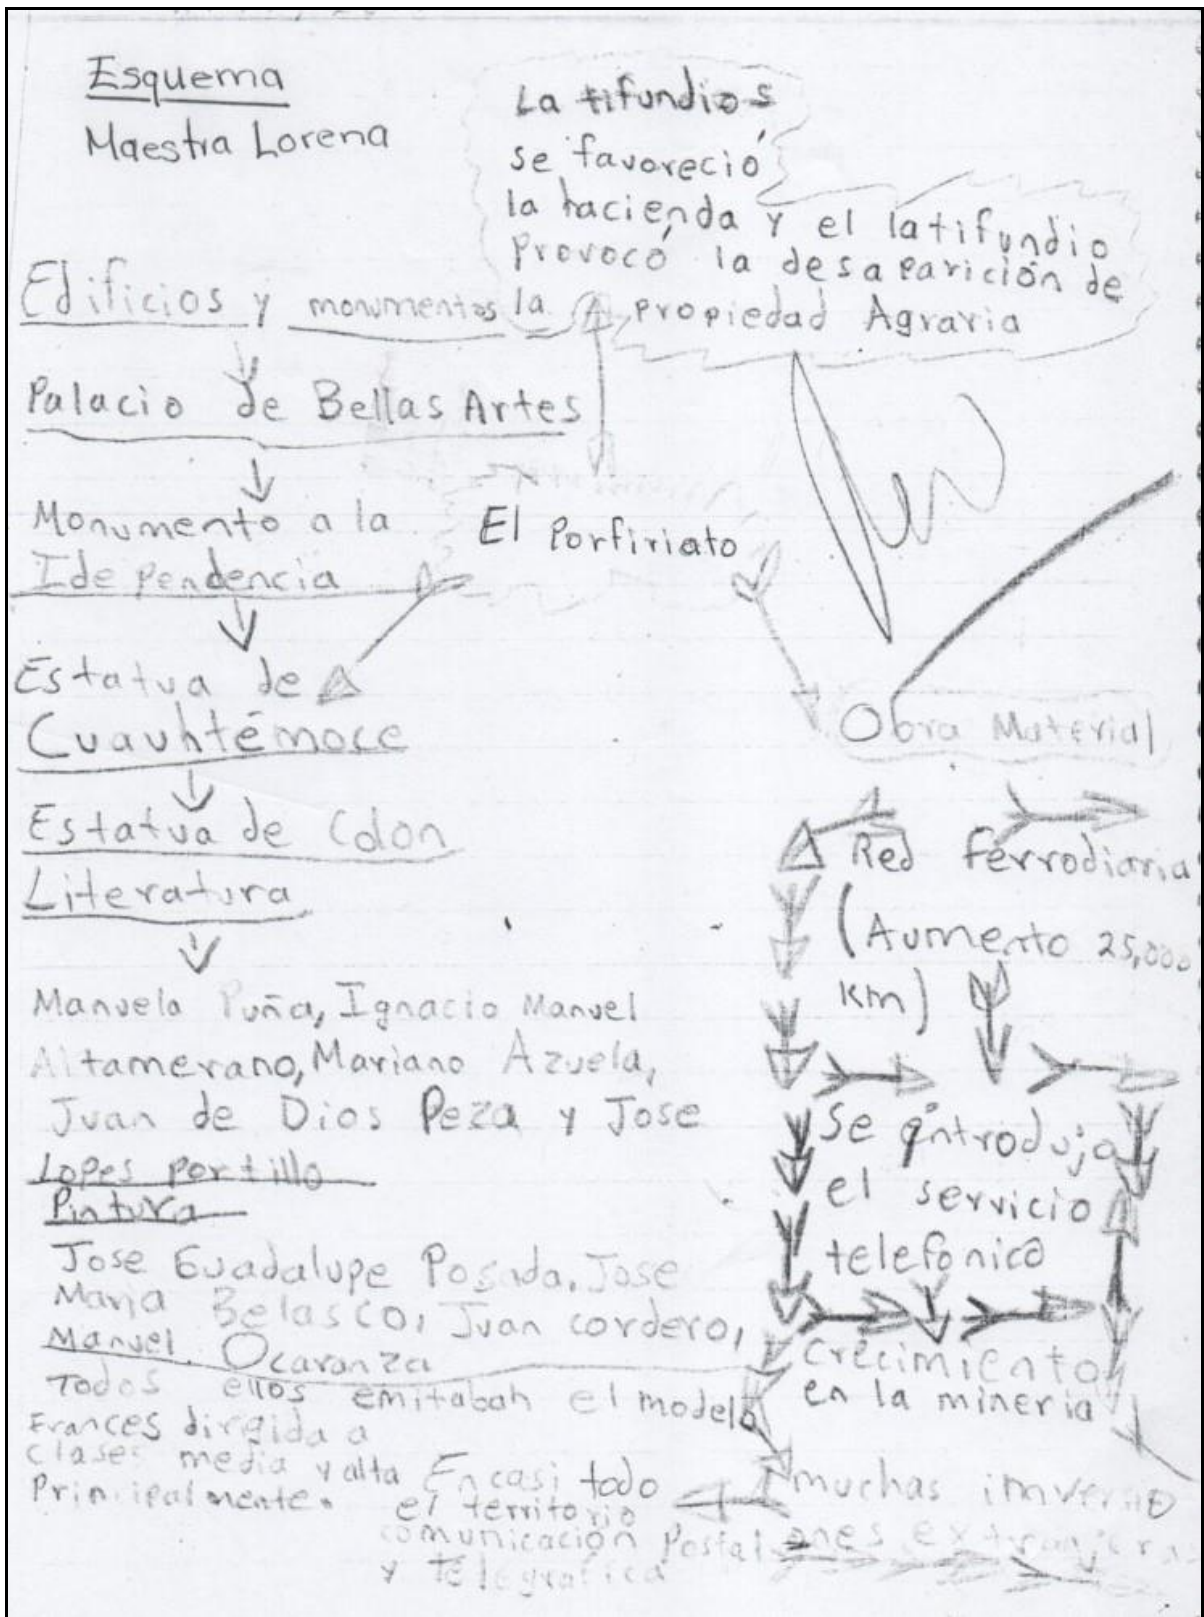 Esquema
Maestra Lorena
La tifundios
se favoreció
la hacienda y el latifundio
Provocó la desaparición de
la propiedad Agraria
Edificios y monumentos
Palacio de Bellas Artes
Monumento a la
Idependencia
Estatua de
Cuauhtémoce
Estatua de Colon
Literatura
Manuela Puña, Ignacio Manuel
Altamerano, Mariano Azuela,
Juan de Dios Peza y Jose
Lopes portillo
Pintura
Jose Guadalupe Posada, Jose
Maria Belasco, Juan cordero,
Manuel Ocaranza
Todos ellos emitaban el modelo
Frances dirigida a
clases media y alta
Principalmente.
El Porfiriato
Obra Material
Red ferrodiaria
(Aumento 25,000
Km)
Se introdujo
el servicio
telefonico
Crecimiento
en la mineria
muchas imversio
ones extranjeras
En casi todo
el territorio
comunicación Postal
y telegrafica